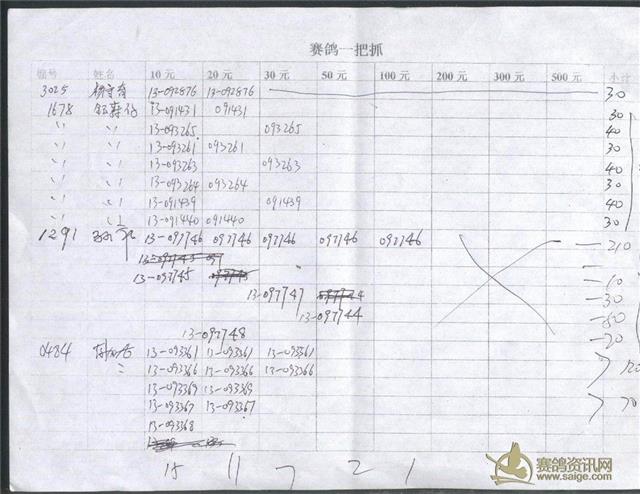 赛鸽一把抓
编号 姓名 10元 20元 30元 50元 100元 200元 300元 500元 小计
3025 13-092876 13-092876 30
1678 13-091431 091431 30
〃 〃 13-093265 093265 40
〃 〃 13-093261 093261 30
〃 〃 13-093263 093263 40
〃 〃 13-093264 093264 30
〃 〃 13-091439 091439 40
〃 〃 13-091440 091440 30
1291 13-097746 097746 097746 097746 097746 210
13-097745 10
13-097747 30
13-097744 50
13-097748 20
0484 13-093361 13-093361 13-093361
〃 13-093366 13-093366 13-093366
13-093369 13-093369
13-093367 13-093367 70
13-093368
15 11 7 2 1
赛鸽资讯网
www.saige.com